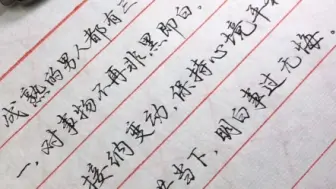 成熟的男人都有三
一.对事物不再非黑即白。
接纳变动,保持心境平
当下,明白事过无悔。